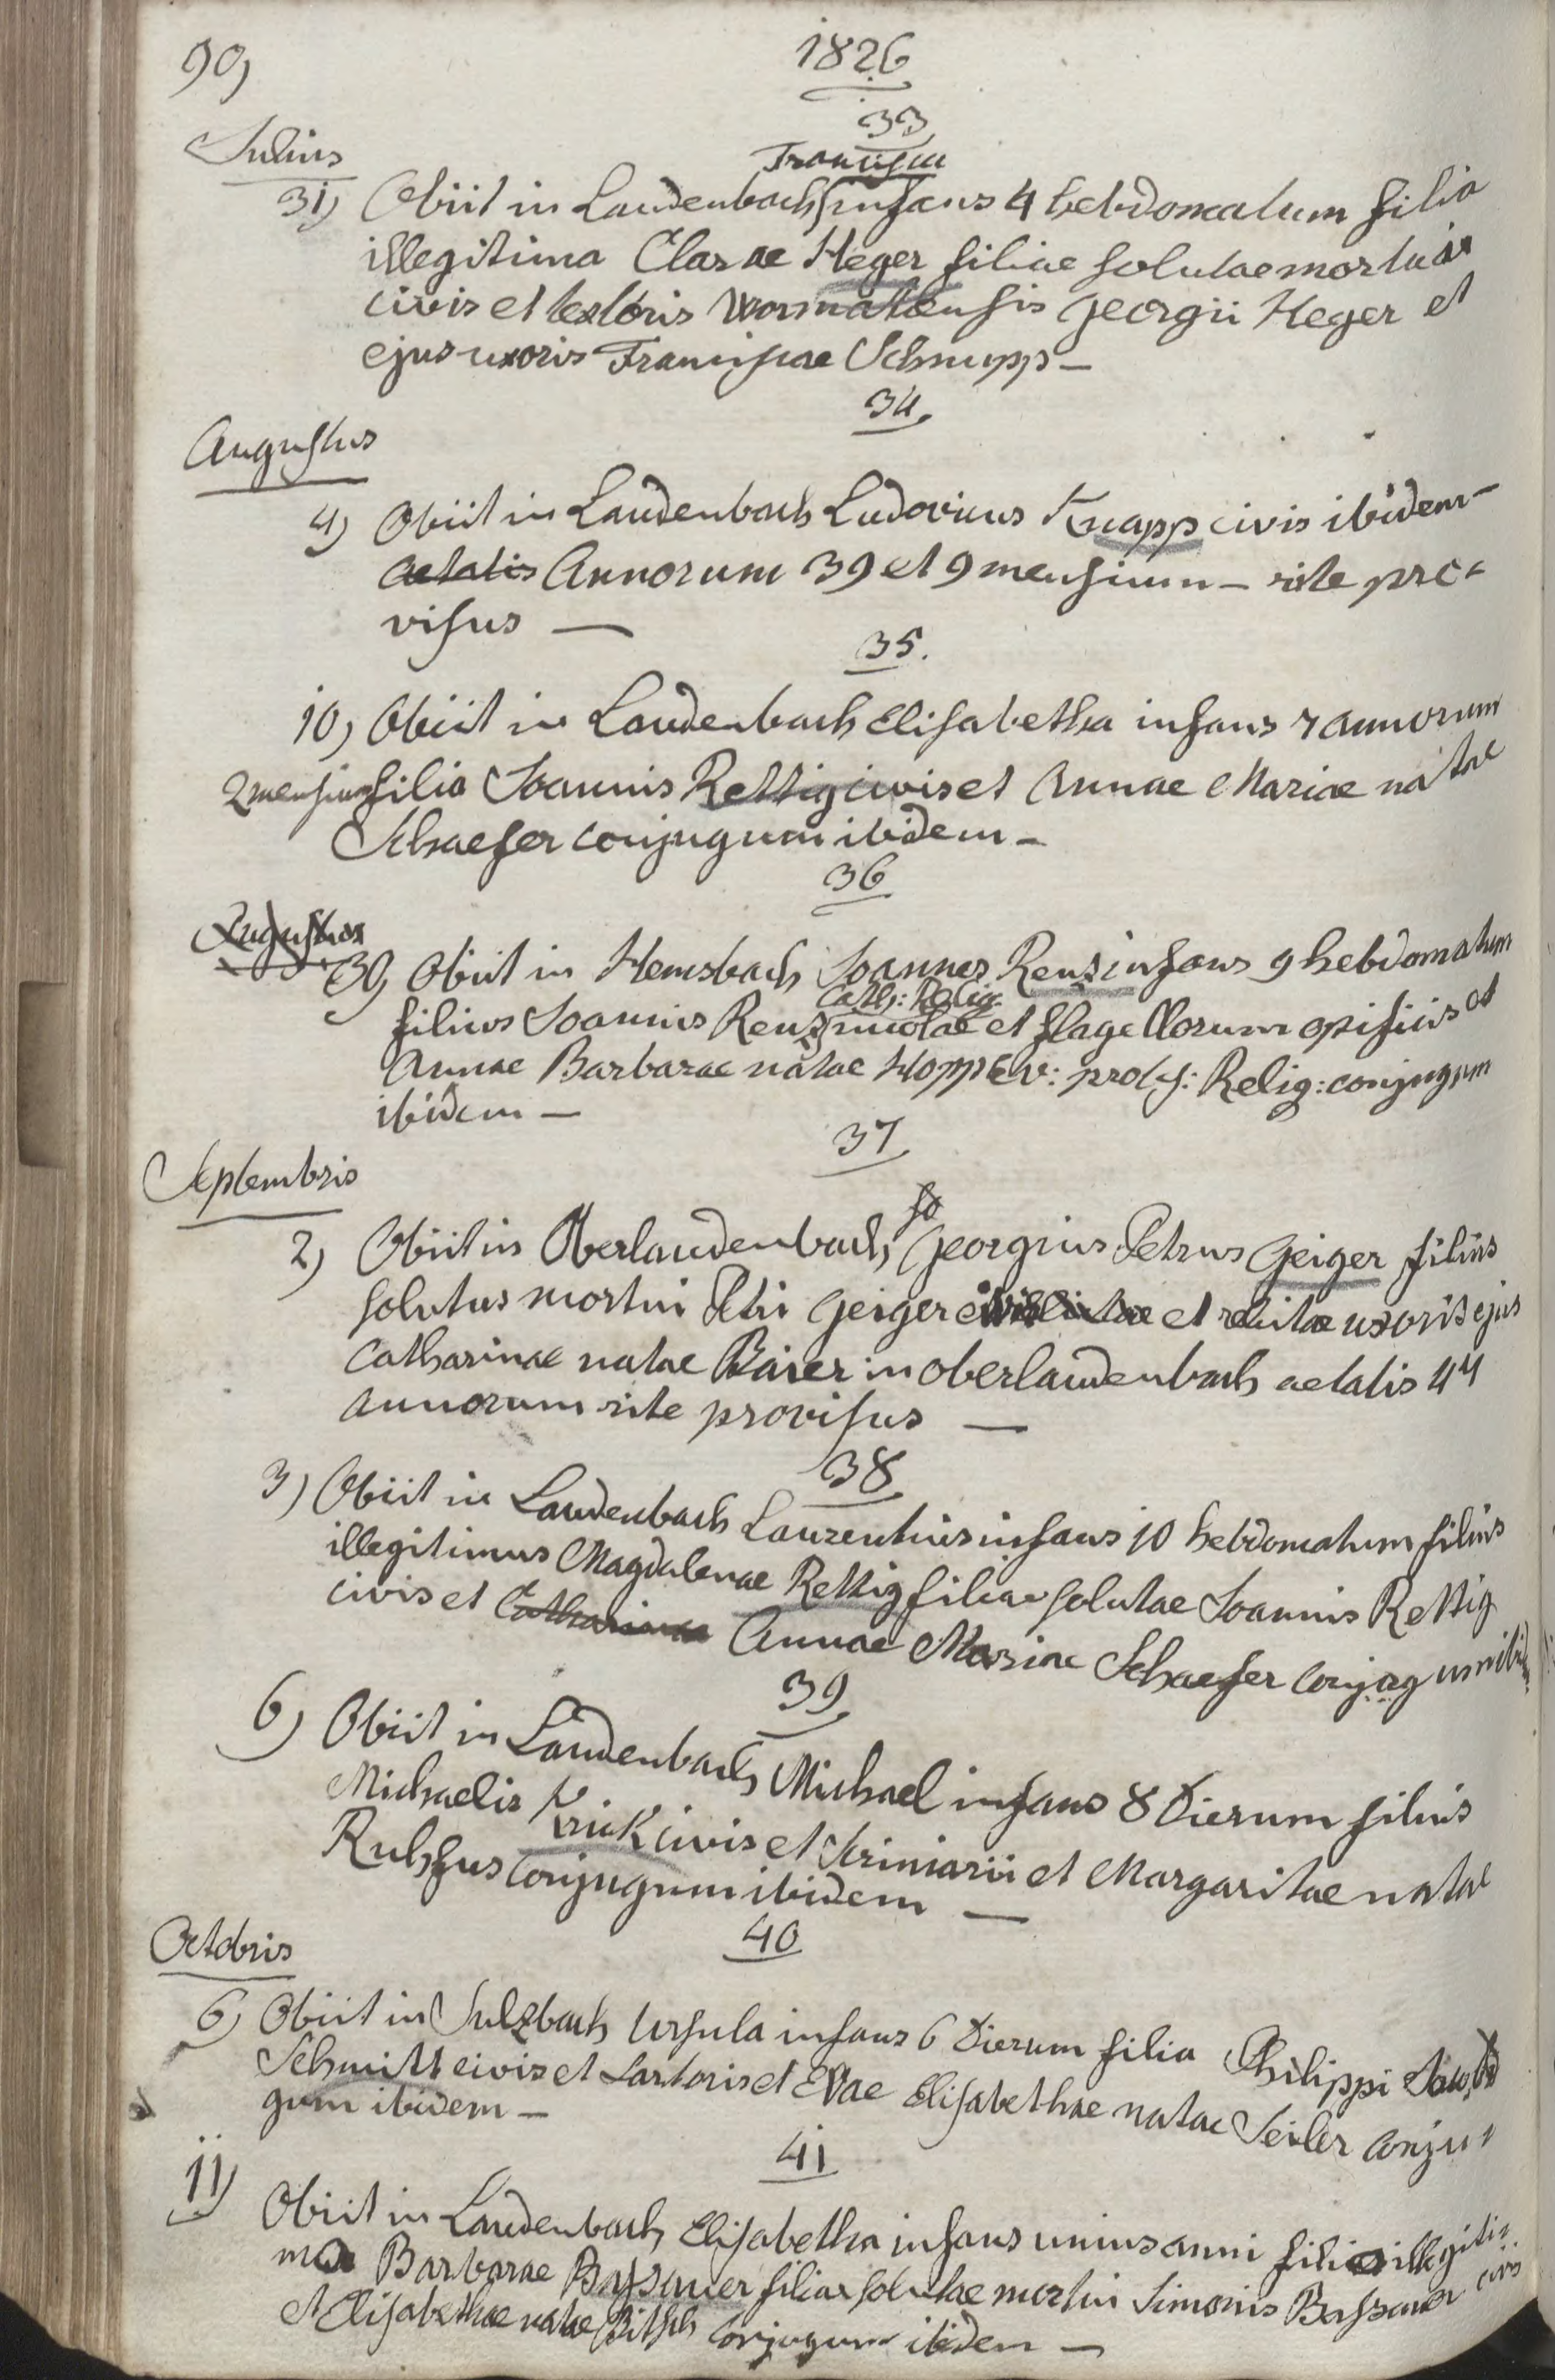 90)
1826
33
Julius
Francisca
31) Obiit in Laudenbach infans 4 hebdomatum filia
illegitima Clarae Heger filiae solutae mortui
civis et textoris Wormatiensis Georgii Heger et
ejus uxoris Franciscae Schnupp –
34.
Augustus
4) Obiit in Laudenbach Ludovicus Knapp civis ibidem –
aetatis Annorum 39 et 9 mensium – rite pro-
visus —
35.
10) Obiit in Laudenbach Elisabetha infans 7 annorum
2 mensium filia Joannis Rettig civis et Annae Mariae natae
Schaefer conjugum ibidem –
36
Augustus
30) Obiit in Hemsbach Joannes Renz infans 9 hebdomatum
Cath: Relig:
filius Joannis Renz incolae et flagellorum opificis et
Annae Barbarae natae Hopp Ev: prot: Relig: conjugum
ibidem —
37
Septembris
2) Obiit in Oberlaudenbach Georgius Petrus Geiger filius
solutus mortui Petri Geiger et relictae uxoris ejus
Catharinae natae Baier in Oberlaudenbach aetatis 44
annorum rite provisus —
38
3) Obiit in Laudenbach Laurentius infans 10 hebdomatum filius
illegitimus Magdalenae Rettig filiae solutae Joannis Rettig
civis et Catharinae Annae Mariae Schaefer conjugum ibid
39
6) Obiit in Laudenbach Michael infans 8 Dierum filius
Michaelis Krick civis et scriniarii et Margaritae natae
Ruhfus conjugum ibidem —
40
Octobris
6) Obiit in Sulzbach Ursula infans 6 Dierum filia Philippi
Schmitt civis et sartoris et Evae Elisabethae natae Seiler conju-
gum ibidem –
41
11) Obiit in Laudenbach Elisabetha infans unius anni filia illegiti-
ma Barbarae Bassauer filiae solutae mortui Simonis Bassauer civis
et Elisabethae natae Bitsch conjugum ibidem —